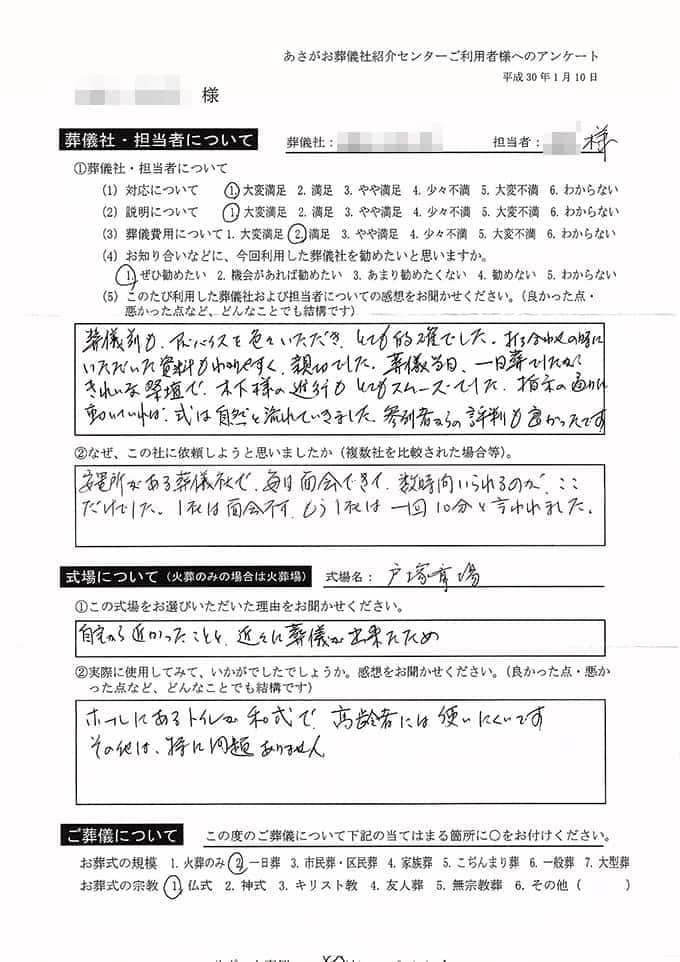 あさがお葬儀社紹介センターご利用者様へのアンケート
平成30年1月10日
様
葬儀社・担当者について 葬儀社: 担当者: 様
①葬儀社・担当者について
(1) 対応について 1.大変満足 2.満足 3.やや満足 4.少々不満 5.大変不満 6.わからない
(2) 説明について 1.大変満足 2.満足 3.やや満足 4.少々不満 5.大変不満 6.わからない
(3) 葬儀費用について 1.大変満足 2.満足 3.やや満足 4.少々不満 5.大変不満 6.わからない
(4) お知り合いなどに、今回利用した葬儀社を勧めたいと思いますか。
1.ぜひ勧めたい 2.機会があれば勧めたい 3.あまり勧めたくない 4.勧めない 5.わからない
(5) このたび利用した葬儀社および担当者についての感想をお聞かせください。(良かった点・
悪かった点など、どんなことでも結構です)
葬儀前も、アドバイスを色々いただき、とても的確でした。打ち合わせの時に
いただいた資料もわかりやすく、親切でした。葬儀当日、一日葬でしたが、
きれいな祭壇で、木下様の進行もとてもスムーズでした。指示の通りに
動いていれば、式は自然と流れていきました。参列者からの評判も良かったです
②なぜ、この社に依頼しようと思いましたか(複数社を比較された場合等)。
安置所がある葬儀社で、毎日面会できて、数時間いられるのが、ここ
だけでした。1社は面会不可、もう1社は一回10分と言われました。
式場について(火葬のみの場合は火葬場) 式場名: 戸塚斎場
①この式場をお選びいただいた理由をお聞かせください。
自宅から近かったことと、近々に葬儀が出来たため
②実際に使用してみて、いかがでしたでしょうか。感想をお聞かせください。(良かった点・悪か
った点など、どんなことでも結構です)
ホールにあるトイレが和式で、高齢者には使いにくいです
その他は、特に問題ありません
ご葬儀について この度のご葬儀について下記の当てはまる箇所に○をお付けください。
お葬式の規模 1.火葬のみ 2.一日葬 3.市民葬・区民葬 4.家族葬 5.こぢんまり葬 6.一般葬 7.大型葬
お葬式の宗教 1.仏式 2.神式 3.キリスト教 4.友人葬 5.無宗教葬 6.その他( )